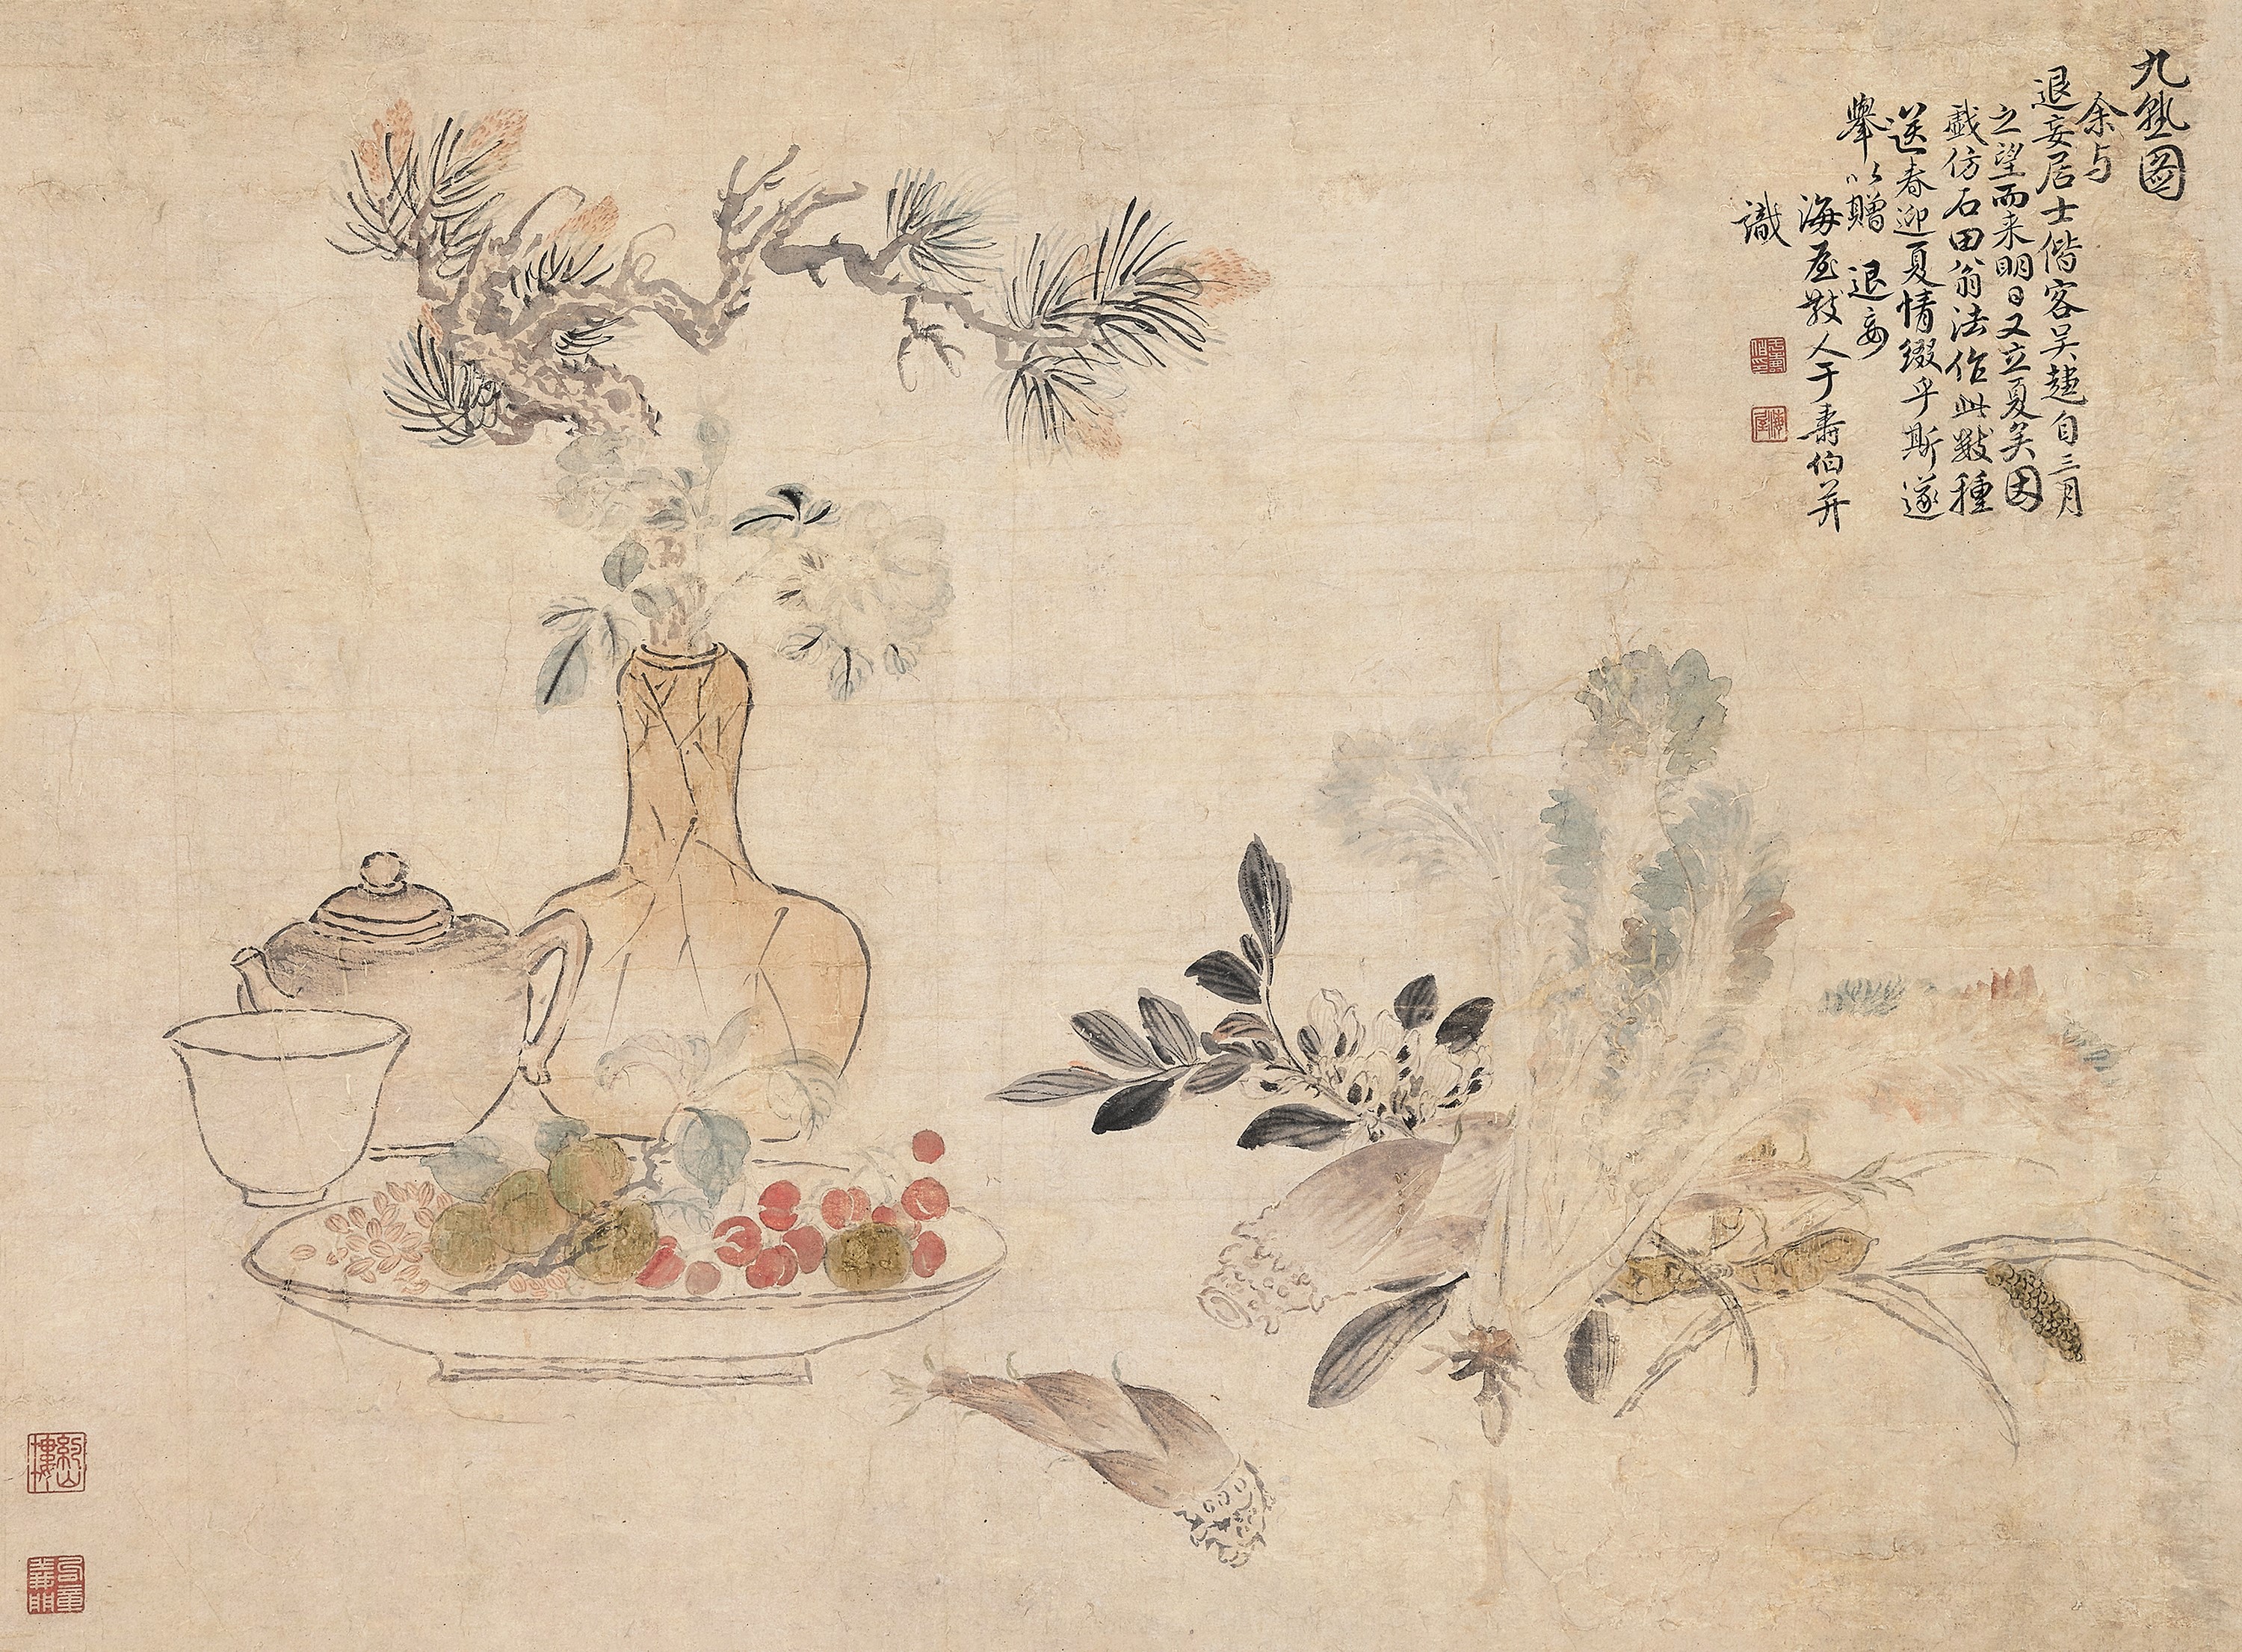 九熟图
余与
退妄居士偕客吴趋自三月
之望而来明日又立夏矣因
戯仿石田翁法作此数種
送春迎夏情缀乎斯遂
舉以贈 退妄
海屋散人于寿伯并
識